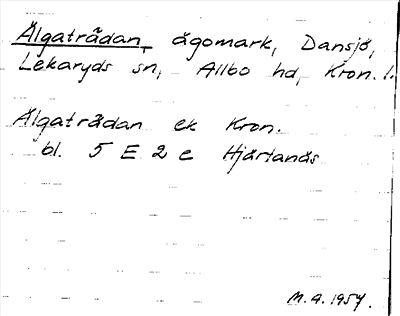 Älgatrådan, ägomark, Dansjö,
Lekaryds sn, Allbo hd, Kron. l.
Älgatrådan ek Kron.
bl. 5 E 2 e Hjärtanäs
M.A. 1957.